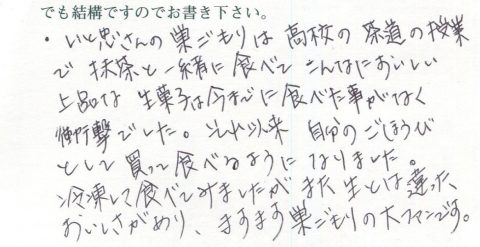 でも結構ですのでお書き下さい。
・いと忠さんの巣ごもりは高校の茶道の授業
で抹茶と一緒に食べてこんなにおいしい
上品な生菓子は今までに食べた事がなく
衝撃でした。それ以来自分のごほうび
として買って食べるようになりました。
冷凍して食べてみましたがまた生とは違った、
おいしさがあり、ますます巣ごもりの大ファンです。